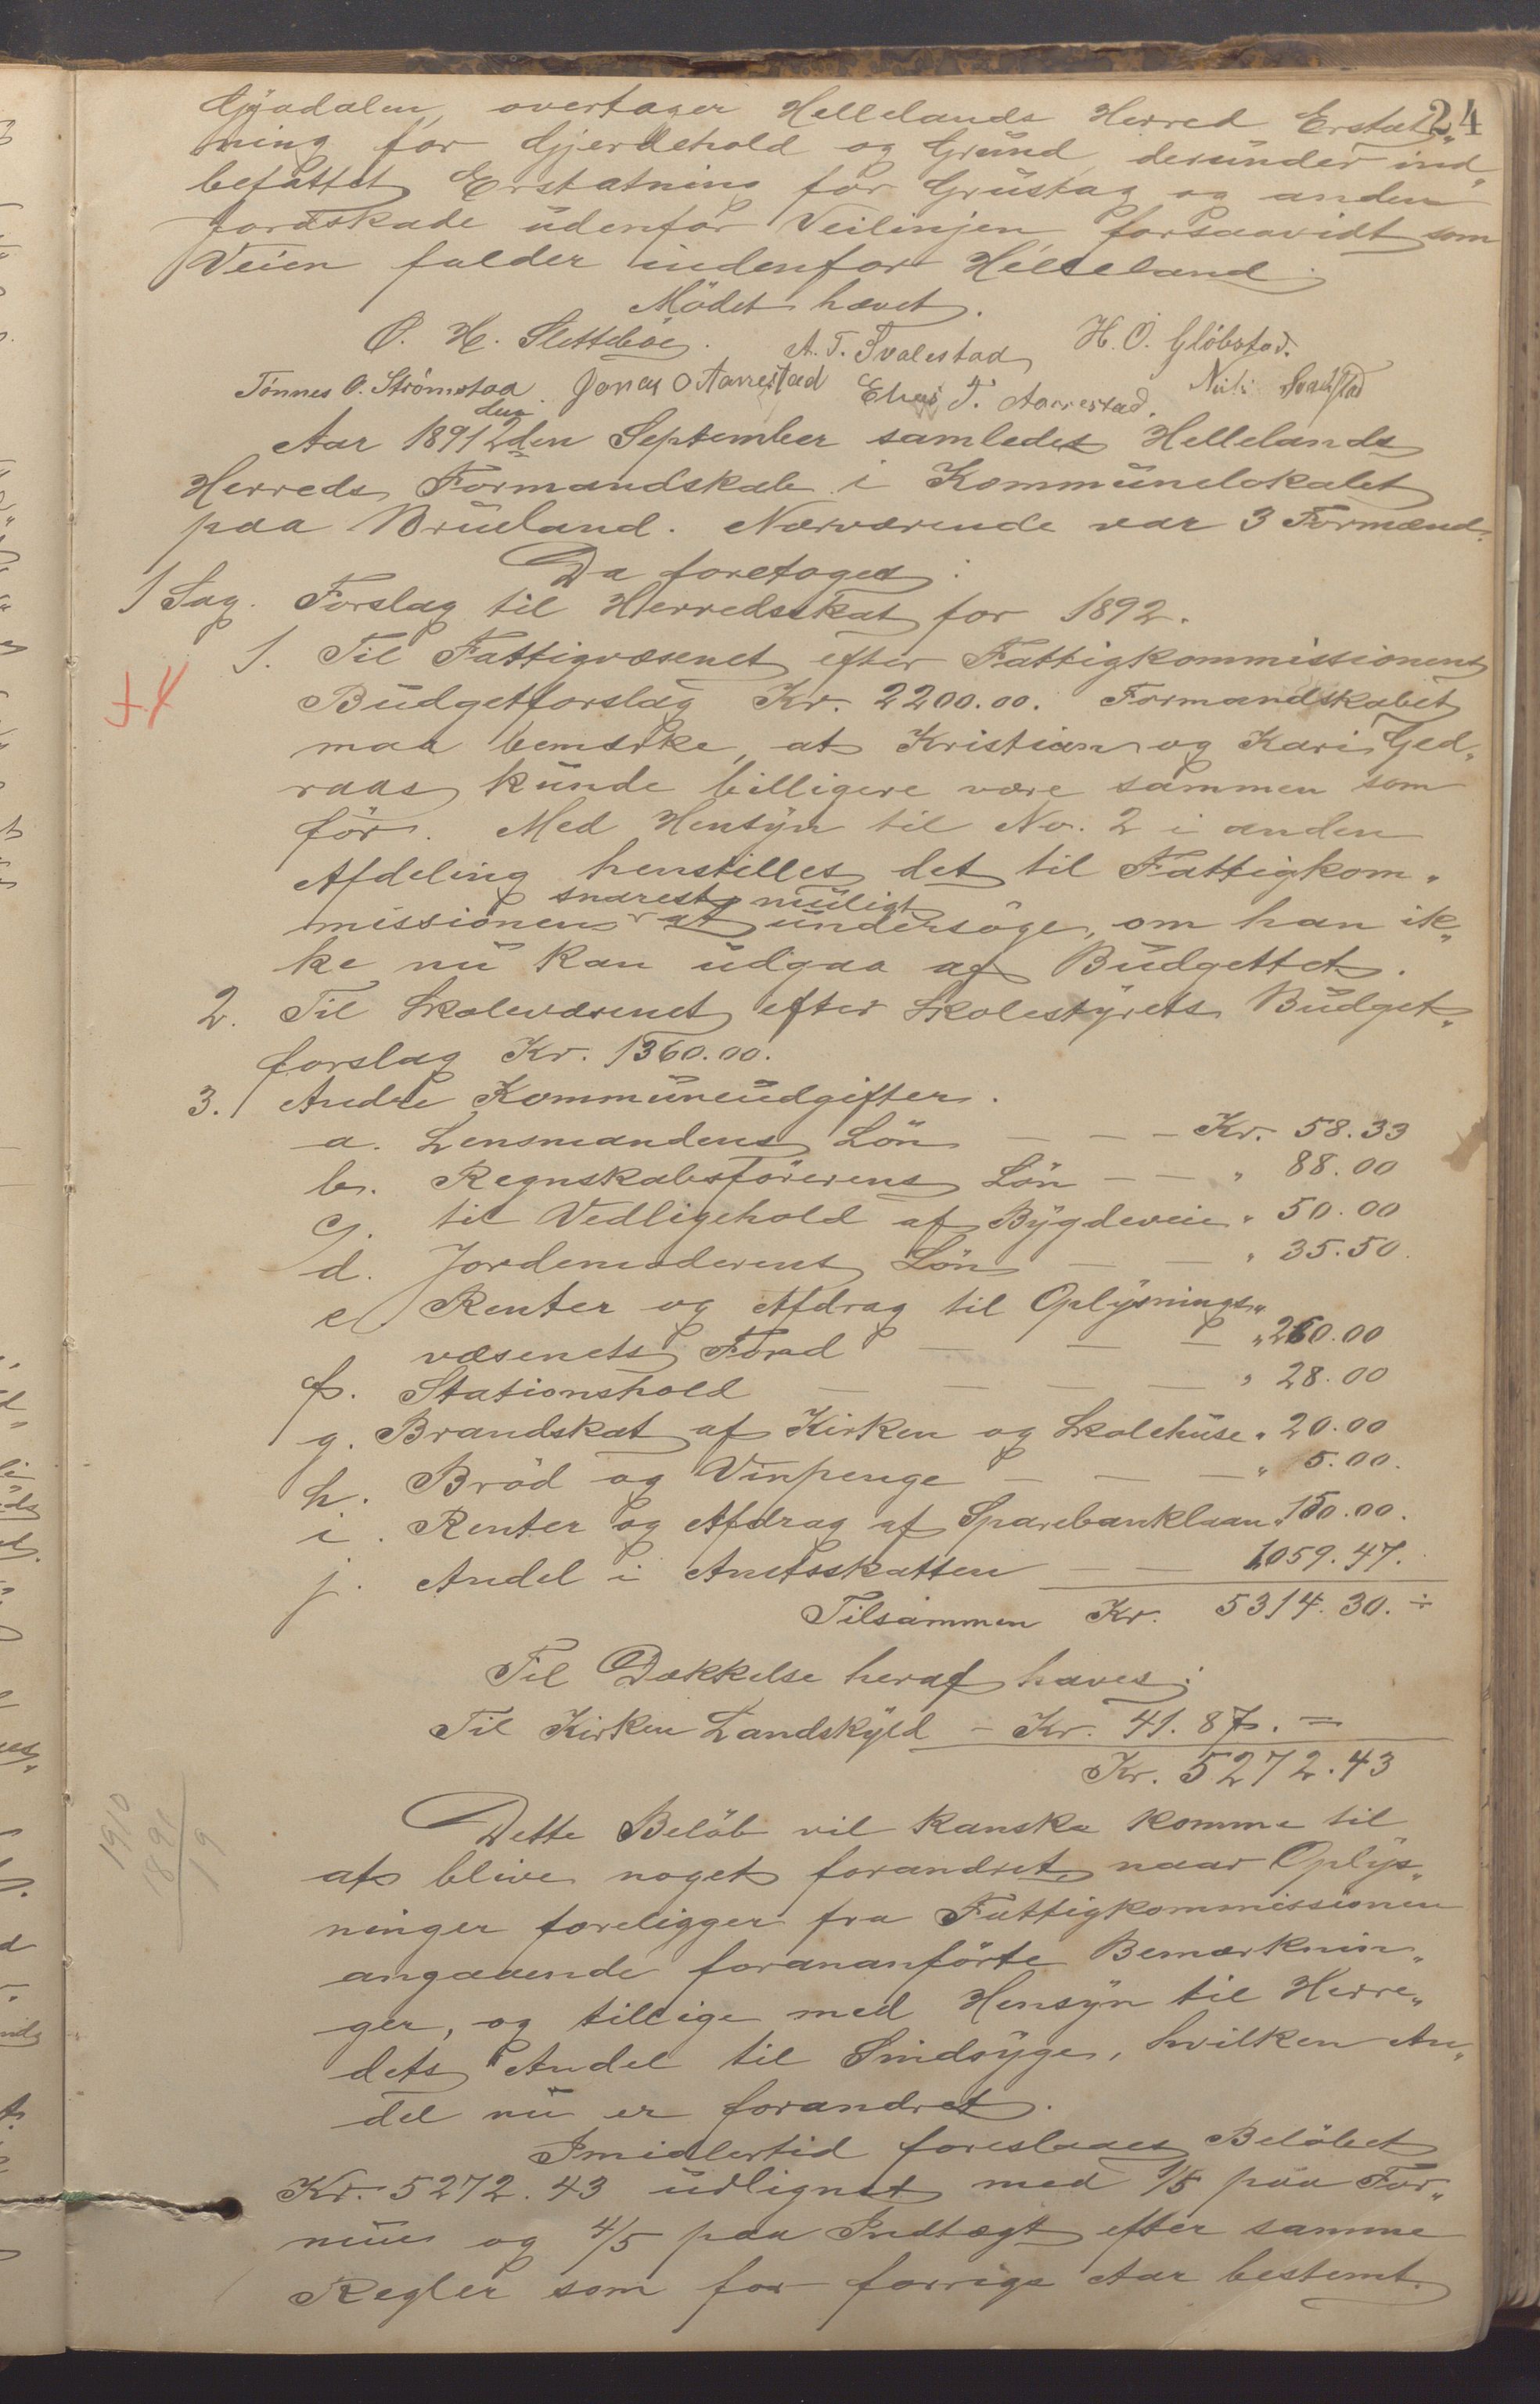 24
Gyadalen, overtager Hellelands Herred Erstat„
ning for Gjerdehold og Grund, derunder ind„
befattet Erstatning for Grustag og anden
Jordskade udenfor Veilinjen, forsaavidt som
Veien falder indenfor Helleland.
Mödet hævet.
O. H. Slettebøe. A. T. Svalestad H. O. Gløbstad.
Tønnes O. Strømstad. Jonas O Aarrestad Elias T. Aarrestad. Nils Svalestad
den
Aar 1891 2den September samledes Hellelands
Herreds Formandskab i Kommunelokalet
paa Brueland. Nærværende var 3 Formænd.
Da foretoges:
1 Sag. Forslag til Herredsskat for 1892.
1. Til Fattigvæsenet efter Fattigkommissionens
Budgetforslag Kr. 2200.00. Formandskabet
maa bemærke, at Kristian og Kari Gjed„
raas kunde billigere være sammen som
för. Med Hensyn til No. 2 i anden
Afdeling henstilles det til Fattigkom„
snarest muligt
missionen at undersöge, om han ik„
ke nu kan udgaa af Budgettet.
2. Til Skolevæsenet efter Skolestyrets Budget„
forslag Kr. 1360.00.
3. Andre Kommuneudgifter.
a. Lensmandens Lön — — — Kr. 58.33
b. Regnskabsförerens Lön — — „ 88.00
c. til Vedligehold af Bygdeveie „ 50.00
d. Jordemoderens Lön — — „ 35.50
e. Renter og Afdrag til Oplysnings„
væsenets Fond — — — „ 260.00
f. Stationshold — — — — „ 28.00
g. Brandskat af Kirken og Skolehuse „ 20.00
h. Bröd og Vinpenge — — — „ 5.00.
i. Renter og Afdrag af Sparebanklaan „ 150.00.
j. Andel i Amtsskatten — — 1059.47.
Tilsammen Kr. 5314.30. ÷
Til Dækkelse heraf haves:
Til Kirken Landskyld – Kr. 41.87. =
Kr. 5272.43
1910
1891
19
Dette Belöb vil kanske komme til
at blive noget forandret, naar Oplys„
ninger foreligger fra Fattigkommissionen
angaaende forananförte Bemærknin„
ger, og tillige med Hensyn til Herre„
dets Andel til Sindsyge, hvilken An„
del nu er forandret.
Imidlertid foreslaaes Belöbet
Kr. 5272.43 udlignet med 1/5 paa For„
mue og 4/5 paa Indtægt efter samme
Regler som for forrige Aar bestemt.